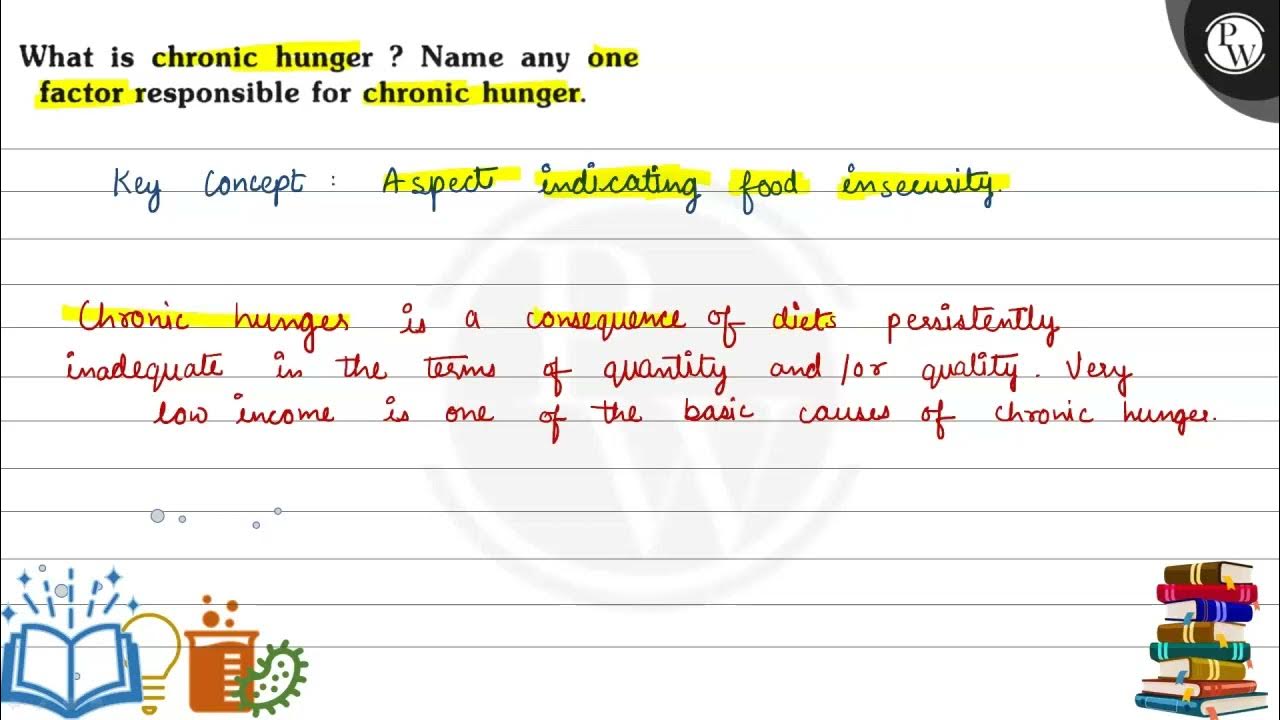 What is chronic hunger ? Name any one
factor responsible for chronic hunger.
PW
Key Concept : Aspect indicating food insecurity.
Chronic hunger is a consequence of diets persistently
inadequate in the terms of quantity and /or quality. Very
low income is one of the basic causes of chronic hunger.
PW